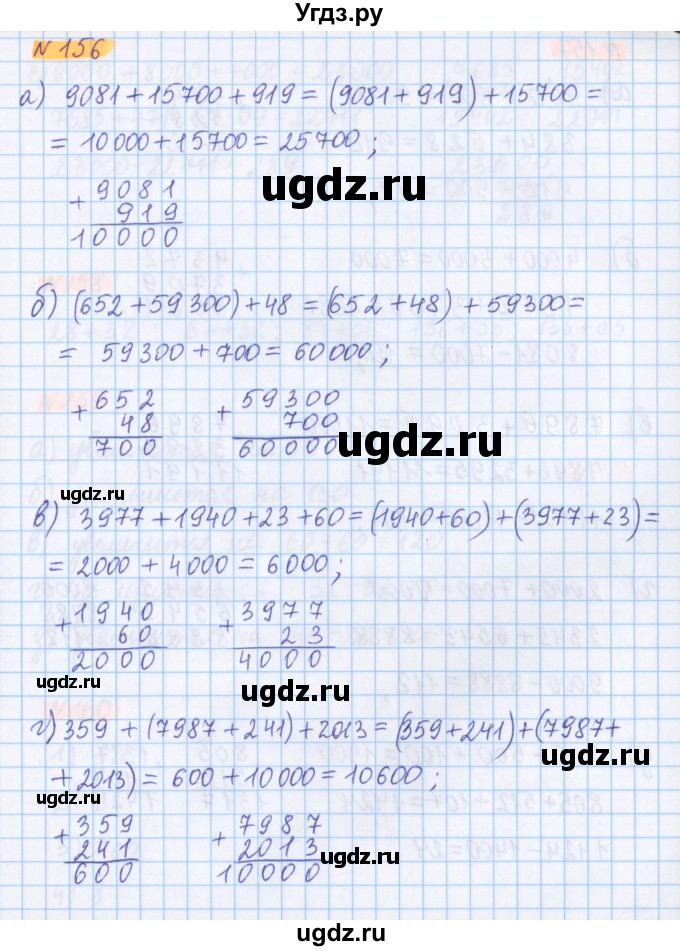 Угдз.ру
N 156
а) 9081 + 15700 + 919 = (9081 + 919) + 15700 =
= 10 000 + 15700 = 25700 ;
ugdz.ru
+ 9081
919
10000
ugdz.ru
б) (652 + 59 300) + 48 = (652 + 48) + 59300 =
= 59300 + 700 = 60 000 ;
+ 652 + 59300
48 700
700 60000
ugdz.ru
ugdz.ru
в) 3977 + 1940 + 23 + 60 = (1940 + 60) + (3977 + 23) =
= 2000 + 4000 = 6000 ;
ugdz.ru
+ 1940 + 3977
60 23
2000 4000
ugdz.ru
ugdz.ru
г) 359 + (7987 + 241) + 2013 = (359 + 241) + (7987 +
+ 2013) = 600 + 10 000 = 10 600 ;
ugdz.ru
ugdz.ru
+ 359 + 7987
241 2013
600 10000
ugdz.ru
ugdz.ru
ugdz.ru